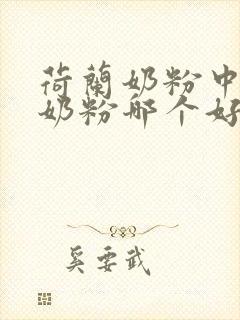 荷蘭奶粉中
奶粉哪个好
奚要武